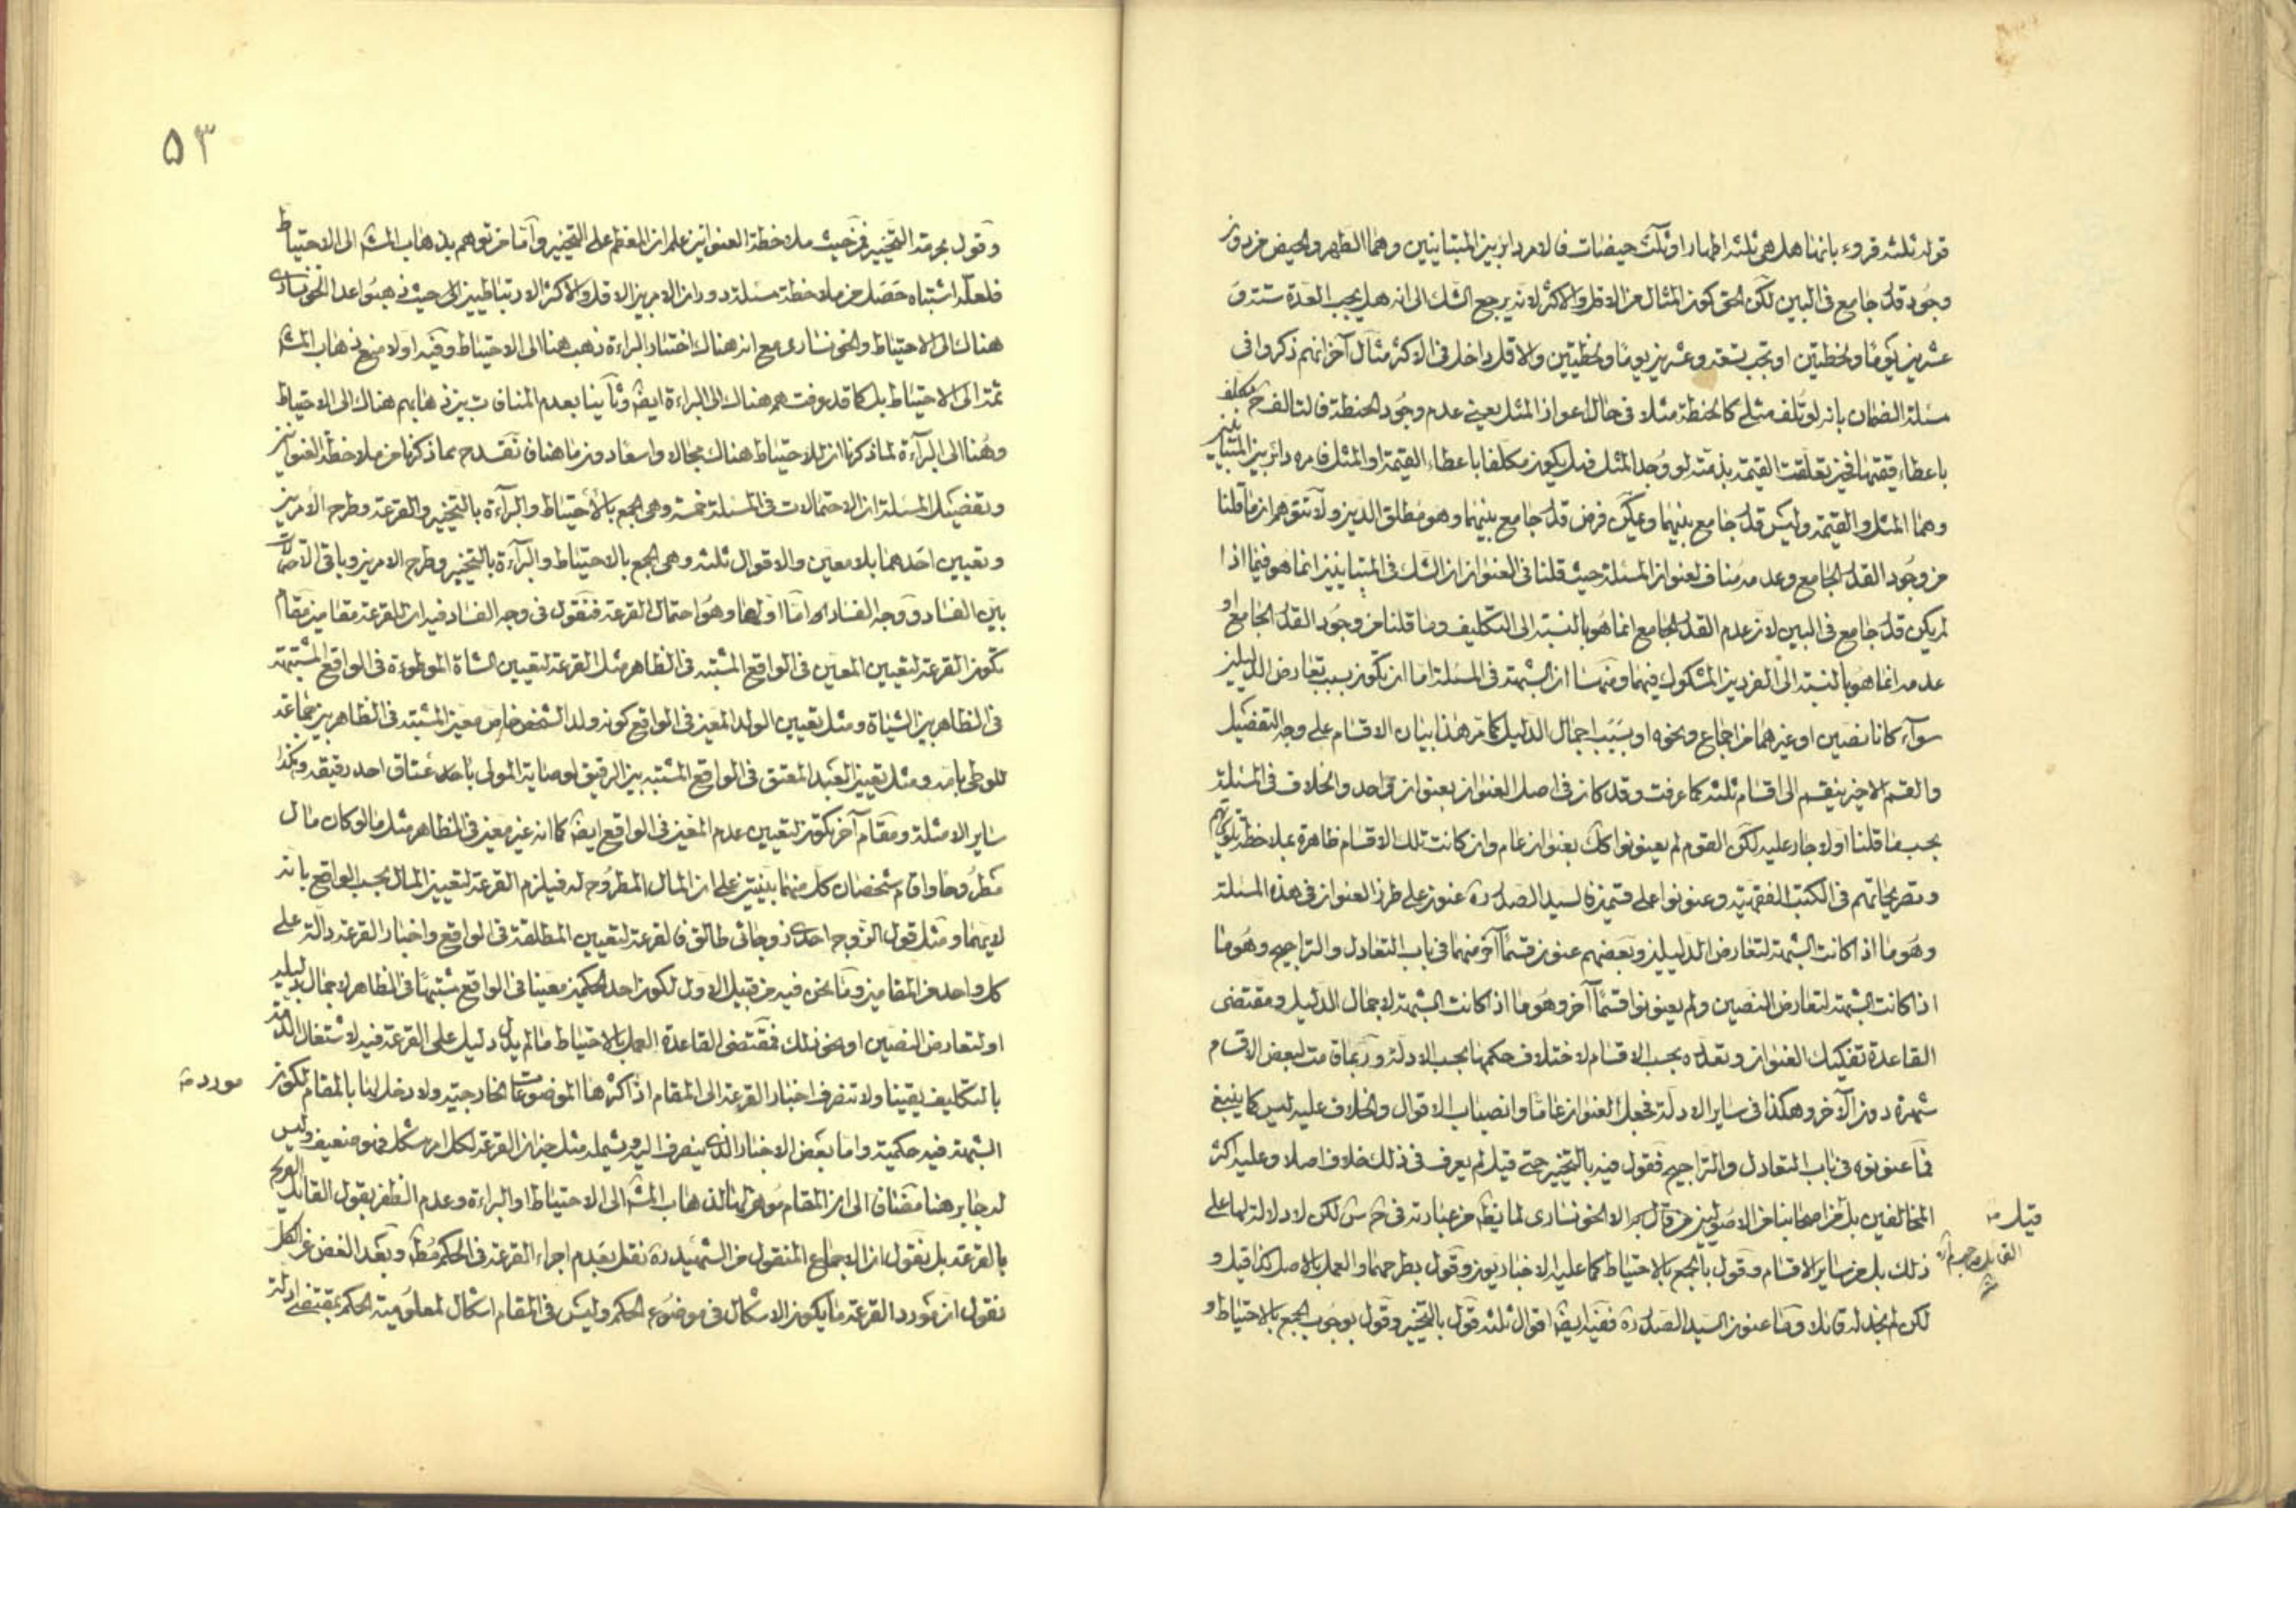 قوله ثلثة قروء بانها هل هي ثلثة اطهار او ثلث حيضات فالامر دائر بين المتباينين وهما الطهر والحيض من دون
وجود قدر جامع في البين لكن الحق كون المثال من الاقل والاكثر لانه يرجع الشك الى انه هل يجب العدة ستة و
عشرين يوما ولحظتين او تجب تسعة وعشرين يوما ولحظتين والاقل داخل في الاكثر مثال آخر انهم ذكروا في
مسئلة الضمان بانه لو تلف مثلي كالحنطة مثلا في حال اعواز المثل يعني عدم وجود الحنطة فالتالف ح مكلف
باعطاء قيمتها فحين تعلقت القيمة بذمته لو وجد المثل فهل يكون مكلفا باعطاء القيمة او المثل فامره دائر بين المتباينين
وهما المثل والقيمة وليس قدر جامع بينهما ويمكن فرض قدر جامع بينهما وهو مطلق الدين ولا تتوهم ان ما قلنا
من وجود القدر الجامع وعدمه مناف لعنوان المسئلة حيث قلنا في العنوان ان الشك في المتباينين انما هو فيما اذا
لم يكن قدر جامع في البين لان عدم القدر الجامع انما هو بالنسبة الى التكليف وما قلنا من وجود القدر الجامع او
عدمه انما هو بالنسبة الى الفردين المشكوك فيهما ومنها ان الشبهة في المسئلة اما ان تكون بسبب تعارض الدليلين
سواء كانا نصين او غيرهما من اجماع ونحوه او بسبب اجمال الدليل كما مر هذا بيان الاقسام على وجه التفصيل
والقسم الاخير ينقسم الى اقسام ثلثة كما عرفت وقد كان في اصل العنوان بعنوان واحد والخلاف في المسئلة
بحسب ما قلنا اولا جار عليه لكن القوم لم يعنونوا كك بعنوان عام وان كانت تلك الاقسام ظاهرة بملاحظة تلويحاتهم
وتصريحاتهم في الكتب الفقهية وعنونوا على قسمين فالسيد الصدر ره عنون على طرز العنوان في هذه المسئلة
وهو ما اذا كانت الشبهة لتعارض الدليلين وبعضهم عنون قسما آخر منهما في باب التعادل والتراجيح وهو ما
اذا كانت الشبهة لتعارض النصين ولم يعنونوا قسما آخر وهو ما اذا كانت الشبهة لاجمال الدليل ومقتضى
القاعدة تفكيك العنوان وتعدده بحسب الاقسام لاختلاف حكمها بحسب الادلة وربما قامت لبعض الاقسام
شهرة دون الآخر وهكذا في ساير الادلة فجعل العنوان عاما وانصباب الاقوال والخلاف عليه ليس كما ينبغي
فما عنونوه في باب التعادل والتراجيح فقول فيه بالتخيير حتى قيل لم يعرف في ذلك خلاف اصلا وعليه اكثر
المخالفين بل من اصحابنا من الاصوليين من قال به الا الخونساري لما يظ من عبارته في ح س لكن لا دلالة لها على
ذلك بل عن ساير الاقسام وقول بالجمع بالاحتياط كما عليه الاخباريون وقول بطرحهما والعمل بالاصل كذا قيل و
لكن لم نجد له قائلا وما عنون السيد الصدر ره ففيه ايضا اقوال ثلثة قول بالتخيير وقول بوجوب الجمع بالاحتياط و
قيل منه
٥٣
وقول بحرمة التخيير فمن حيث ملاحظة العنوانين علم ان المعظم على التخيير واما من توهم بذهاب المشه الى الاحتياط
فلعله اشتباه حصل من ملاحظة مسئلة دوران الامر بين الاقل والاكثر الارتباطيين الى حيث ذهبوا عدا الخونساري
هناك الى الاحتياط والخونساري مع ان هناك اختار البراءة ذهب هنا الى الاحتياط وفيه اولا منع ذهاب المشه
ثمة الى الاحتياط بل كما قد عرفت هم هناك الى البراءة ايضا وثانيا بعدم المنافات بين ذهابهم هناك الى الاحتياط
وهنا الى البرآءة لما ذكرنا ان للاحتياط هناك مجالا واسعا دون ما هنا فانقدح بما ذكرنا من ملاحظة العنوانين
وتفصيل المسئلة ان الاحتمالات في المسئلة خمسة وهي الجمع بالاحتياط والبرآءة بالتخيير والقرعة وطرح الامرين
وتعيين احدهما بلا معين والاقوال ثلثة وهي الجمع بالاحتياط والبرآءة بالتخيير وطرح الامرين وباقي الاحتمالات
بين الفساد ووجه الفساد اما اولها وهو احتمال القرعة فنقول في وجه الفساد فيه ان للقرعة مقامين مقام
تكون القرعة لتعيين المعين في الواقع المشتبه في الظاهر مثل القرعة لتعيين الشاة الموطوءة في الواقع المشتبهة
في الظاهر بين الشياة ومثل تعيين الولد المعين في الواقع كونه ولد الشخص خاص معين المشتبه في الظاهر بين جماعة
للوطي بامه ومثل تعيين العبد المعتق في الواقع المشتبه بين الرقيق لوصاية المولى باحد عتاق احد رقيقه وهكذا
ساير الامثلة ومقام آخر تكون لتعيين عدم المعين في الواقع ايضا كما انه غير معين في الظاهر مثل ما لو كان مال
مطروحا واقام شخصان كل منهما بينتين على ان المال المطروح له فيلزم القرعة لتعيين المال بحسب الواقع بانه
لايهما ومثل قول الزوج احدى زوجاتي طالق فالقرعة لتعيين المطلقة في الواقع واخبار القرعة دالة على
كل واحد من المقامين وما نحن فيه من قبيل الاول لكون احد الحكمين معينا في الواقع مشتبها في الظاهر لاجمال الدليل
او لتعارض النصين او نحو ذلك فمقتضى القاعدة العمل بالاحتياط ما لم يدل دليل على القرعة فيه لاشتغال الذمة
بالتكليف يقينا ولا تنصرف اخبار القرعة الى المقام اذ اكثرها الموضوعات الخارجية ولا دخل لها بالمقام لكون
مورده
الشبهة فيه حكمية واما بعض الاخبار الذي ينصرف اليه ويشمله مثل خبر ان القرعة لكل امر مشكل فهو ضعيف وليس
له جابر هنا مضافا الى ان المقام موهون لها لذهاب المشه الى الاحتياط او البراءة وعدم الظفر بقول القائل الصريح
بالقرعة بل نقول ان الاجماع المنقول من الشهيد ره نقل بعدم اجراء القرعة في الحكم مط وبعد الغض عن الكل
نقول ان مورد القرعة ما يكون الاشكال في موضوع الحكم وليس في المقام اشكال لمعلومية الحكم بمقتضى ادلة